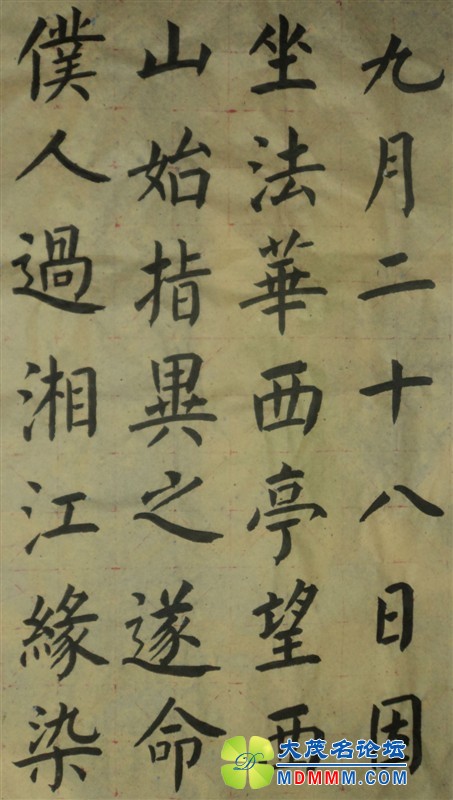 九月二十八日因
坐法華西亭望西
山始指異之遂命
僕人過湘江緣染
大茂名论坛
MDMMM.COM